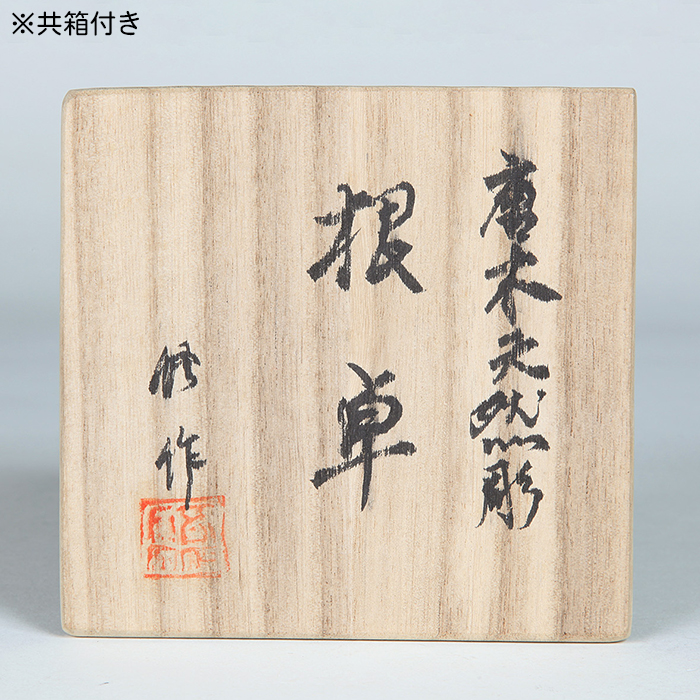 ※共箱付き
唐木天然彫
根卓
作